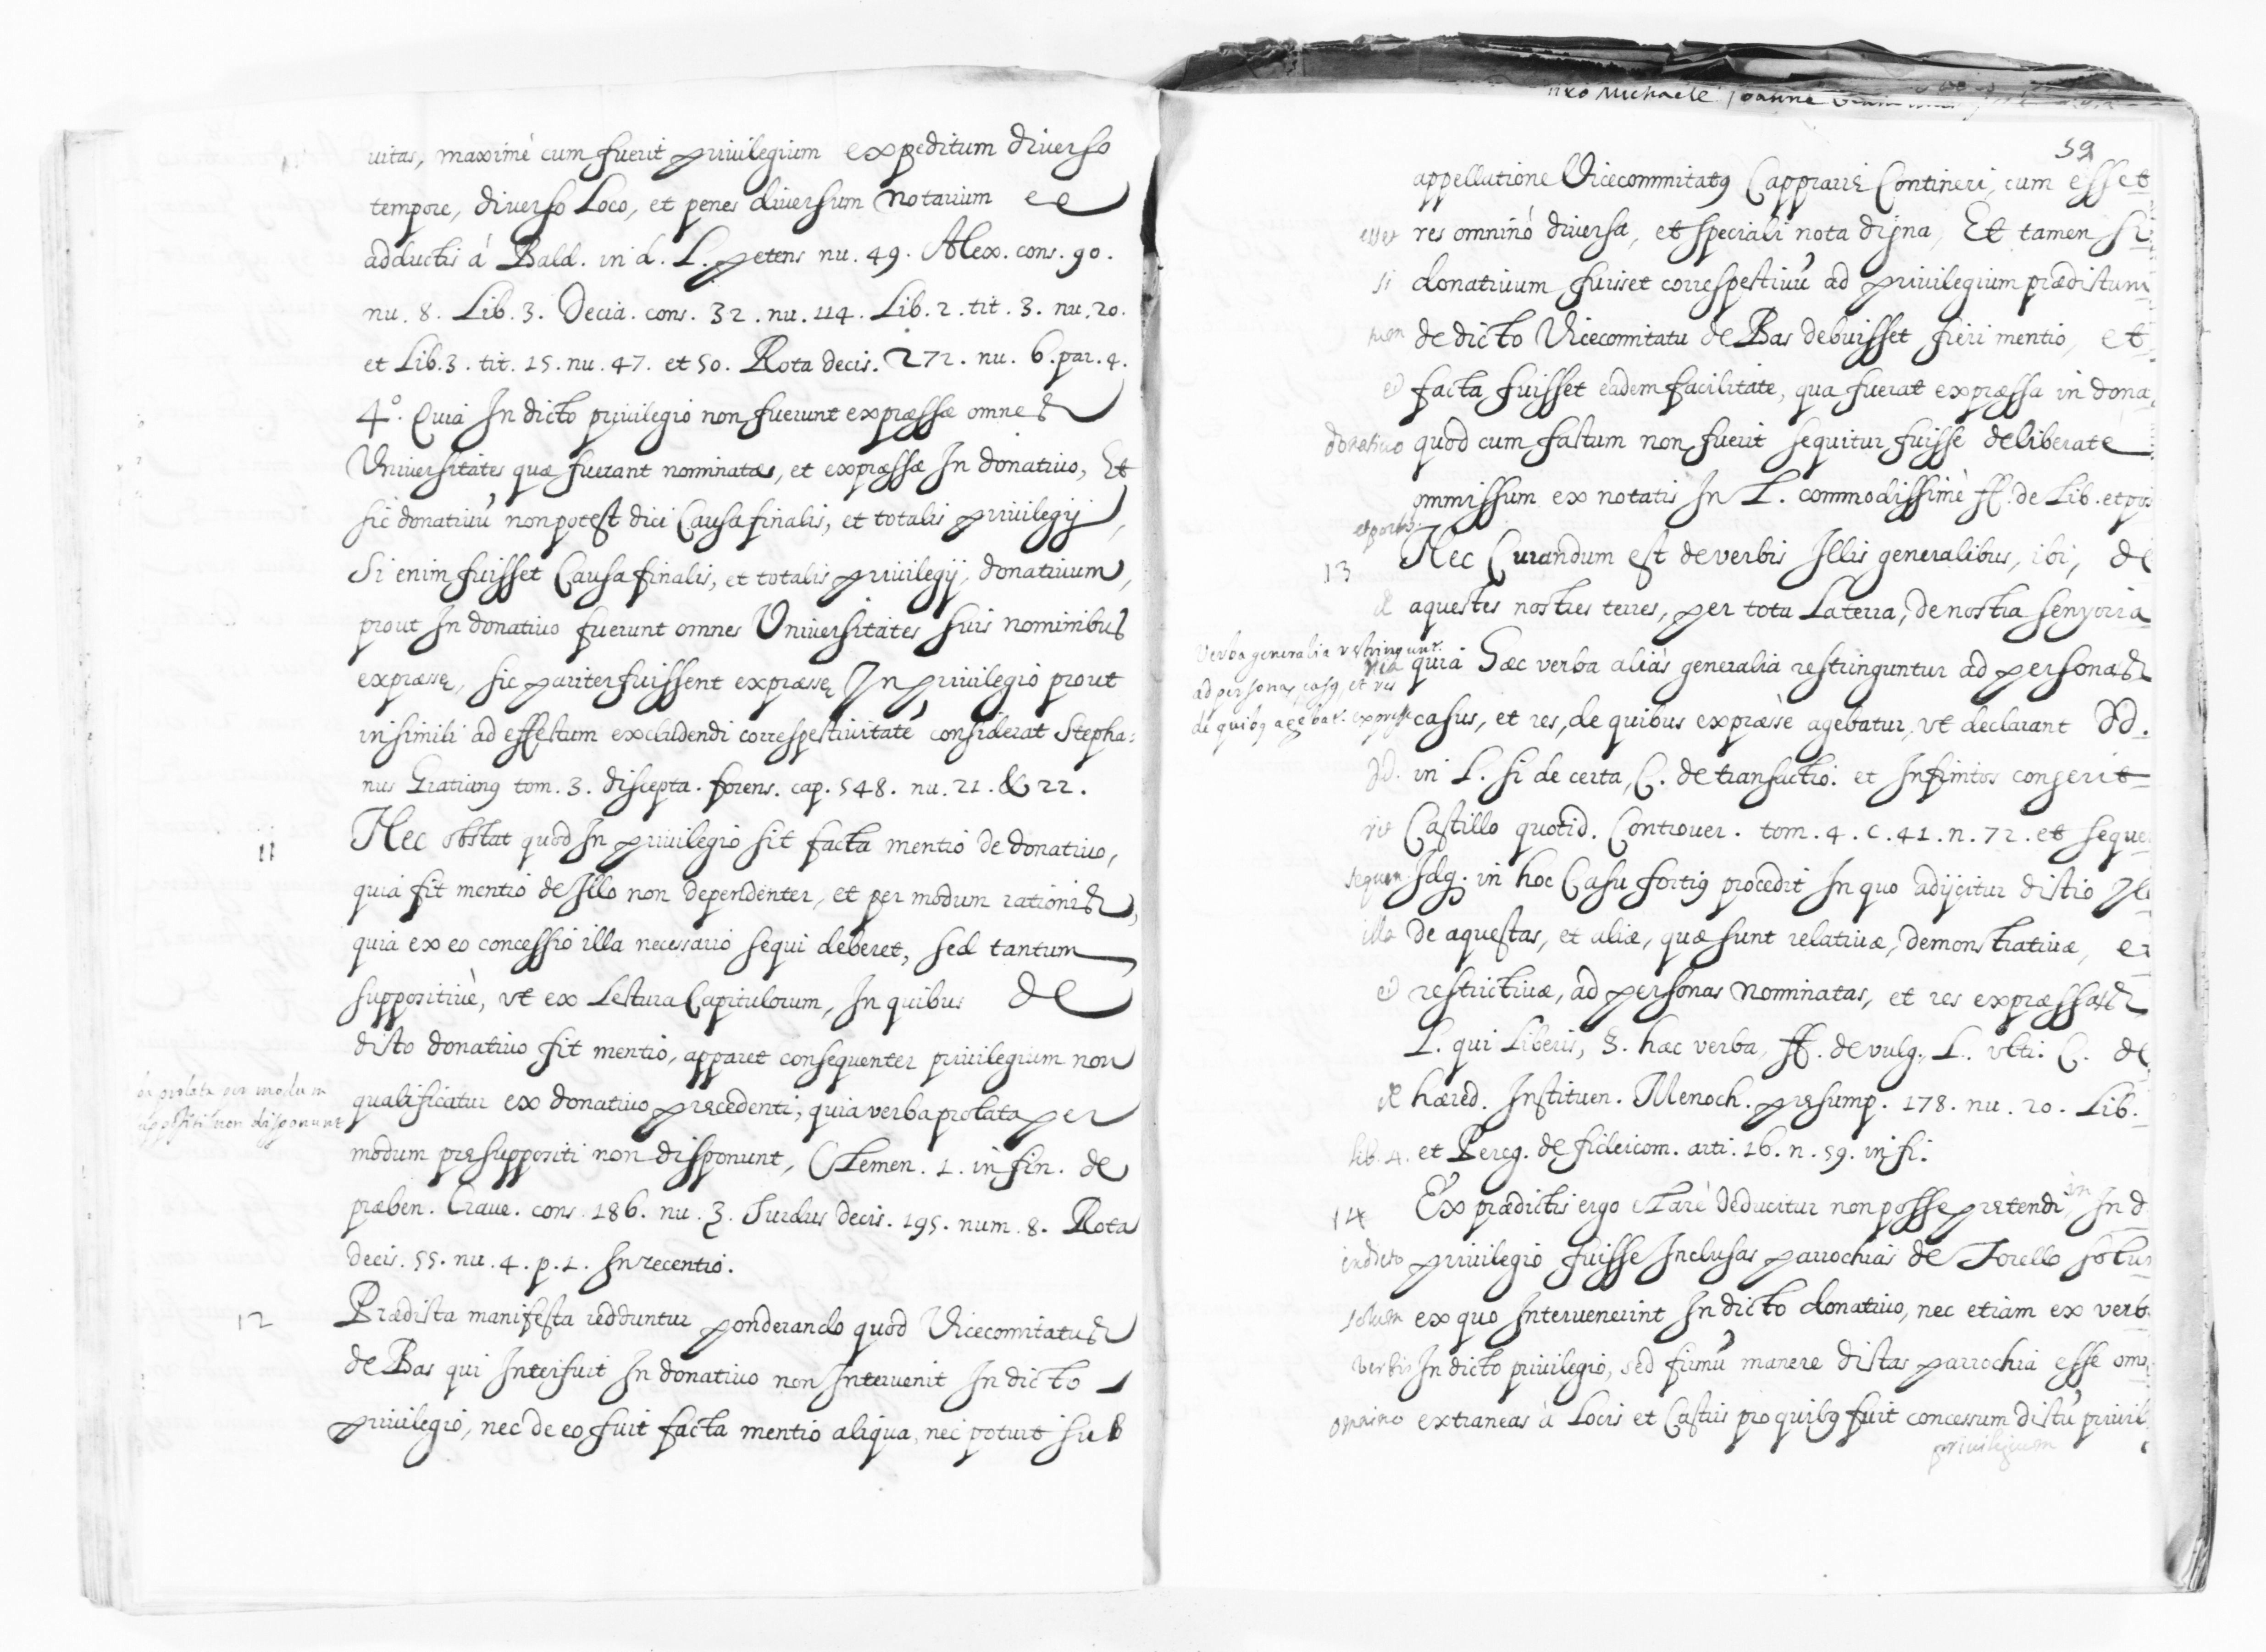 uitas, maximè cum fuerit priuilegium expeditum diuerso
tempore, diuerso Loco, et penes diuersum Notarium ee
adductis á Bald. in d. L. petens nu. 49. Alex. cons. 90.
nu. 8. Lib. 3. Decia. cons. 32. nu. 114. Lib. 2. tit. 3. nu. 20.
et Lib. 3. tit. 15. nu. 47. et 50. Rota decis. 272. nu. 6. par. 4.
4º. Quia In dicto priuilegio non fuerunt expræssæ omnes
Uniuersitates quæ fuerant nominatæ, et expræssæ In donatiuo, Et
sic donatiuũ non potest dici Causa finalis, et totalis priuilegij,
Si enim fuisset Causa finalis, et totalis priuilegij, donatiuum,
prout In donatiuo fuerunt omnes Uniuersitates suis nominibus
expræssę, sic pariter fuissent expræssę In priuilegio prout
in simili ad effectum excludendi correspectiuitatẽ considerat Stepha:
nus Gratianꝰ tom. 3. discepta. forens. cap. 548. nu. 21. & 22.
11
Nec obstat quod In priuilegio sit facta mentio de donatiuo,
quia fit mentio de Illo non dependenter, et per modum rationis,
quia ex eo concessio illa necessario sequi deberet, sed tantum
suppositiuè, vt ex Lectura Capitulorum, In quibus de
dicto donatiuo fit mentio, apparet consequenter priuilegium non
qualificatur ex donatiuo pręcedenti, quia verba prolata per
ba prolata per modum
modum pręsuppositi non disponunt, Clemen. 1. in fin. de
non disponunt
præben. Craue. cons. 186. nu. 3. Surdus decis. 195. num. 8. Rota
decis. 55. nu. 4. p. 1. In recentio.
12
Prædicta manifesta redduntur ponderando quod Vicecomitatus
de Bas qui Interfuit In donatiuo non Interuenit In dicto
priuilegio, nec de eo fuit facta mentio aliqua, nec potuit sub
Michaele Joanne
59
appellatione Vicecommitatꝰ Capprarię Contineri, cum esset
esset res omninò diuersa, et speciali nota digna, Et tamen si
si donatiuum fuisset correspectiuũ ad priuilegium prædictum
de dicto Vicecomitatu de Bas debuisset fieri mentio, et
et facta fuisset eadem facilitate, qua fuerat expræssa in dona
donatiuo quod cum factum non fuerit sequitur fuisse deliberatè
ommissum ex notatis In L. commodissimè ff. de Lib. et pos
et postu.
13 Nec Curandum est de verbis Illis generalibus, ibi, de
de aquestes nostres terres, per tota La terra, de nostra senyoria
Verba generalia restringunt.
ad personas, casꝰ, et res
de quibꝰ agebat. expresse
ria quia hæc verba aliàs generalia restringuntur ad personas
casus, et res, de quibus expræsse agebatur, vt declarant Dd.
Dd. in L. si de certa, C. de transactio. et Infinitos congerit
rit Castillo quotid. Controuer. tom. 4. c. 41. n. 72. et seque
sequen. Idq. in hoc Casu fortiꝰ procedit In quo adijcitur dictio Il
illa de aquestas, et aliæ, quæ sunt relatiuæ, demonstratiuæ, et
et restrictiuæ, ad personas Nominatas, et res expræssas
L. qui Liberis, §. hæc verba, ff. de vulg. L. vlti. C. de
de hæred. Instituen. Menoch. pręsump. 178. nu. 20. Lib.
lib. 4. et Pereg. de fideicom. arti. 16. n. 59. in fi.
14 Ex prædictis ergo clarè deducitur non posse prętendi, in In d
in dicto priuilegio fuisse Inclusas parrochias de Torello solu
solum ex quo Interuenerint In dicto donatiuo, nec etiam ex verb
verbis In dicto priuilegio, sed firmũ manere dictas parrochia esse om
omnino extraneas à Locis et Castris pro quibꝰ fuit concessum dictũ priuil
priuilegium